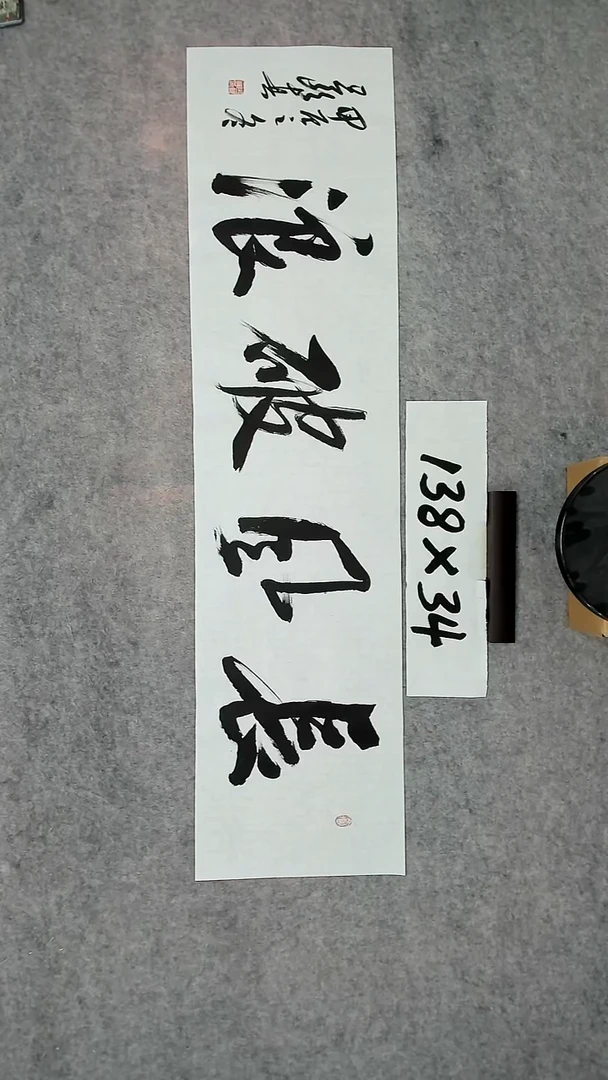 長風破浪
甲辰之冬
138×34